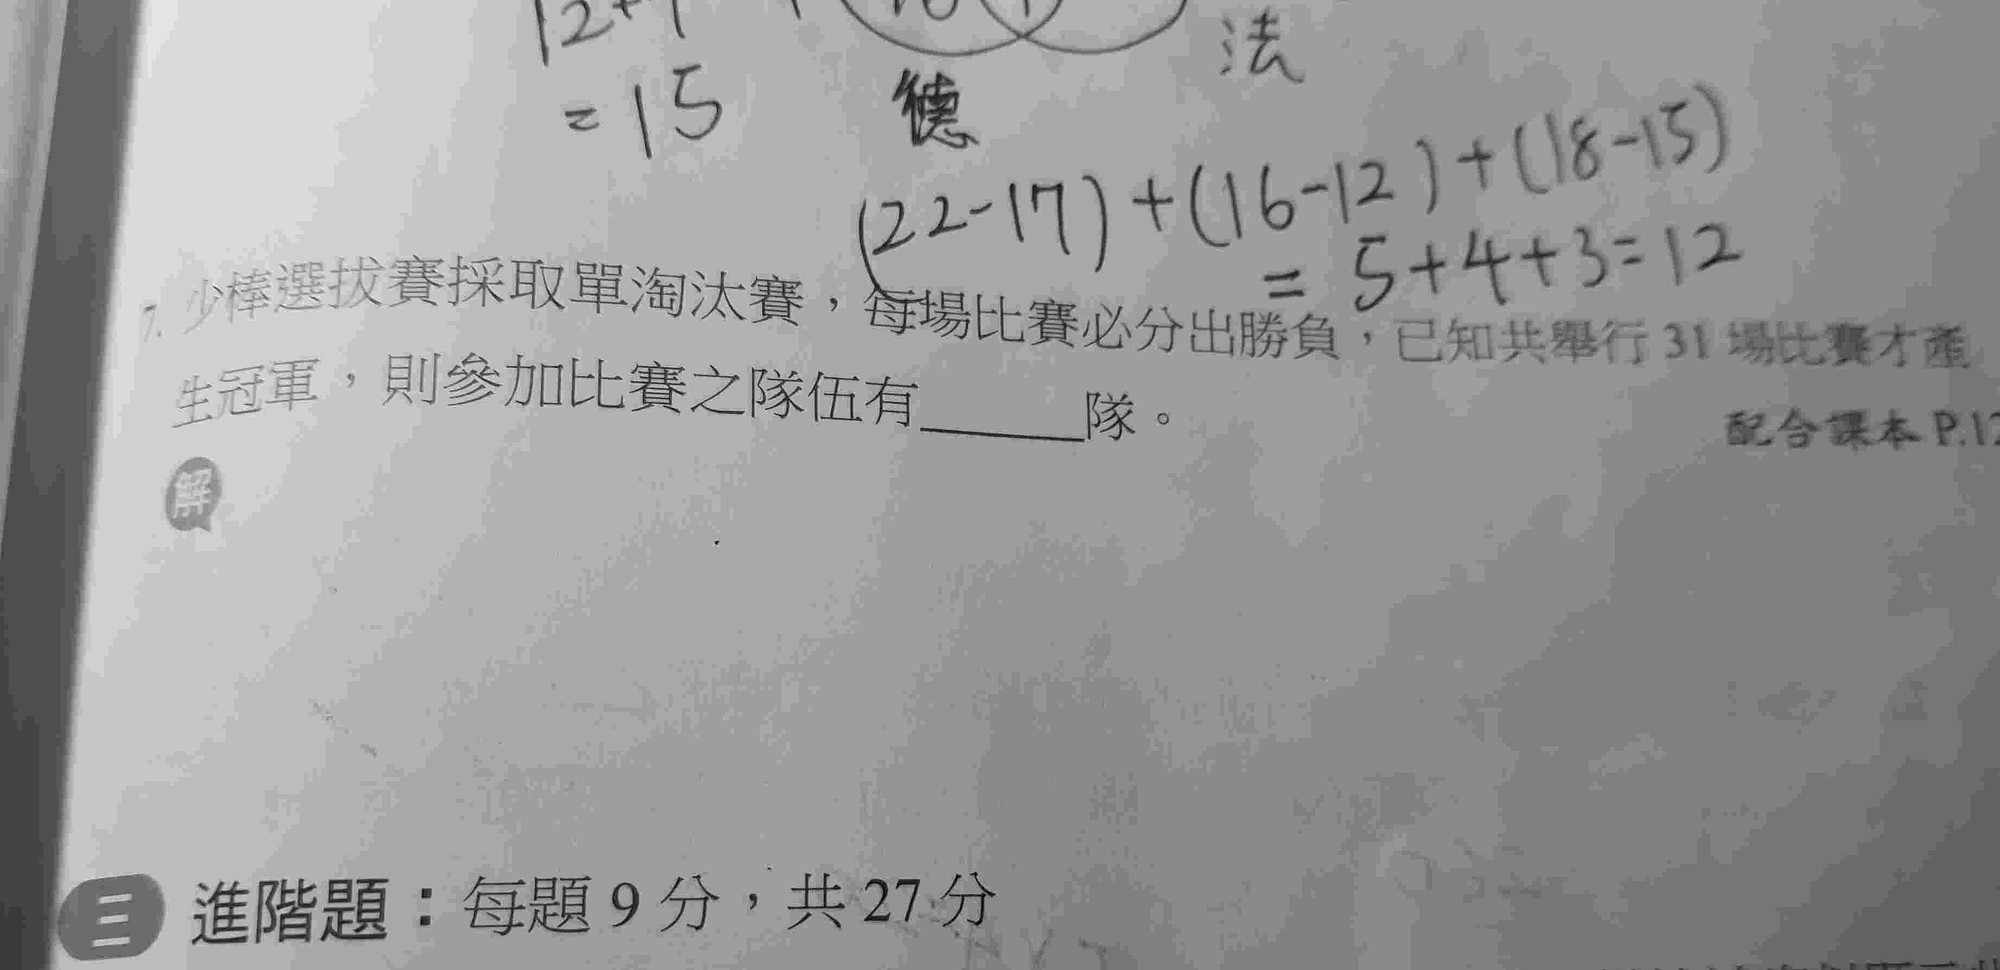 = 15
德
法
(22-17)+(16-12)+(18-15)
= 5+4+3=12
7. 少棒選拔賽採取單淘汰賽，每場比賽必分出勝負，已知共舉行 31 場比賽才產
生冠軍，則參加比賽之隊伍有______隊。
配合課本 P.12
解
三 進階題：每題 9 分，共 27 分